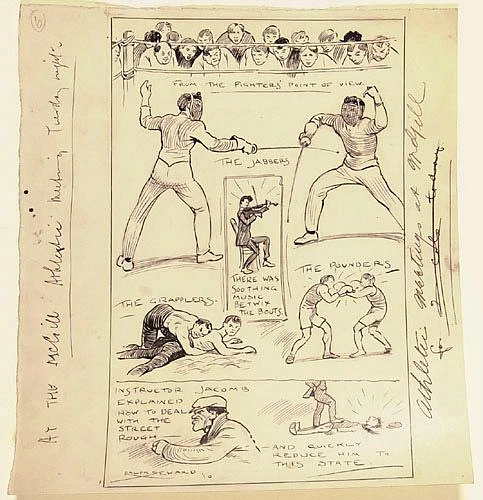 6
At the McGill Athletic Meeting Tuesday night.
FROM THE FIGHTERS' POINT OF VIEW.
THE JABBERS
THERE WAS
SOOTHING
MUSIC
BETWIX
THE BOUTS.
THE POUNDERS
THE GRAPPLERS.
INSTRUCTOR JACOMB
EXPLAINED
HOW TO DEAL
WITH THE
STREET
ROUGH
—AND QUICKLY
REDUCE HIM TO
THIS STATE.
RALPH SEWARD
Athletic meetings at McGill